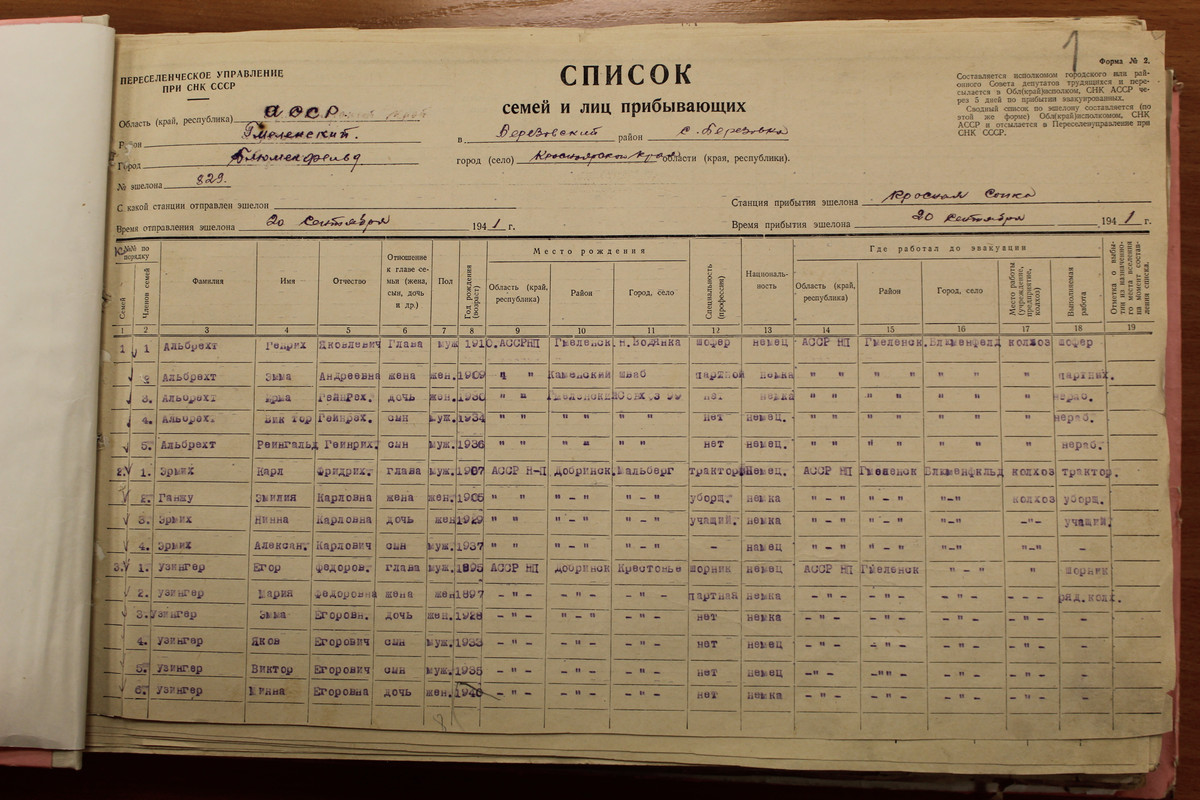 1
Форма № 2.
ПЕРЕСЕЛЕНЧЕСКОЕ УПРАВЛЕНИЕ
ПРИ СНК СССР
СПИСОК
семей и лиц прибывающих
Составляется исполкомом городского или рай-
онного Совета депутатов трудящихся и пере-
сылается в Обл(край)исполком, СНК АССР че-
рез 5 дней по прибытии эвакуированных.
Сводный список по эшелону составляется (по
этой же форме) Обл(край)исполкомом, СНК
АССР и отсылается в Переселенуправление при
СНК СССР.
Область (край, республика) АССР
Район Гмеленский.
Город Блюменфельд
в Березовский район с. Березовка
город (село) Красноярский края области (края, республики).
№ эшелона 829.
С какой станции отправлен эшелон
Станция прибытия эшелона Красная Сопка
Время отправления эшелона 20 сентября 1941 г.
Время прибытия эшелона 20 сентября 1941 г.
№№ по порядку
Семей
Членов семей
Фамилия
Имя
Отчество
Отношение к главе се-мьи (жена, сын, дочь и др.)
Пол
Год рождения (возраст)
Место рождения
Область (край, республика)
Район
Город, село
Специальность (профессия)
Националь-ность
Где работал до эвакуации
Область (край, республика)
Район
Город, село
Место работы (учреждение, предприятие, колхоз)
Выполняемая работа
Отметка о выбы-тии из назначенно-го места вселения на момент состав-ления списка.
1 2 3 4 5 6 7 8 9 10 11 12 13 14 15 16 17 18 19
1 1 Альбрехт Генрих Яковлевич Глава муж 1910. АССРНП Гмеленск. Н.Водянка шофер немец АССР НП Гмеленск. Блюменфелд колхоз шофер
2 Альбрехт Эмма Андреевна жена жен. 1909 " " Каменский шваб немка " " " " " " "
3. Альбрехт Ирма Гейнрех. дочь жен. 1930 " " Гмеленский нет немка " " " " " " " нераб.
4. Альбрех. Вик тор Гейнрех. сын муж. 1934 " " " " " " нет немец. " " " " " " " нераб.
5. Альбрехт Реингальд Генрих. сын муж. 1936 " " " " " " нет немец. " " " " " " " нераб.
2. 1. Эрмих Карл Фридрих. глава муж. 1907 АССР Н-П Добринск. Мальберг трактор немец. АССР НП Гмеленск Блюменфкльд колхоз трактор.
2. Ганжу Эмилия Карловна жена жен. 1905 " " " - " " - " уборщ. немка " - " " - " "-" колхоз уборщ.
3. Эрмих Нинна Карловна дочь жен 1929 " " " - " " - " учащий. немка " - " " - " "-" -"- учащий.
4. Эрмих Алексан. Карлович сын муж. 1937 " " " - " " - " - намец " - " " - " "-" "-" -
3. 1. Узингер Егор Федоров. глава муж. 1895 АССР НП Добринск Крестовье шорник немец АССР НП Гмеленск " - " " шорник
2. Узингер Мария Федоровна жена жен 1897 - " - - " - - " - партная немка - " - - " - - " - - - - ряд.колх.
3. Узингер Эмма Егоровн. дочь жен. 1928 - " - " - " - " - нет немка - " - - " - - " - - " - -
4. Узингер Яков Егорович сын муж. 1933 - " - - " - - " - нет немец - " - - " - - " - - " - -
5. Узингер Виктор Егорович сын муж. 1935 - " - - " - - " - нет немец -" - -""- - " - - " - -
6. Узингер Минна Егоровна дочь жен. 1940 - " - - " - - " - нет немка - " - - " - - " - - " - -